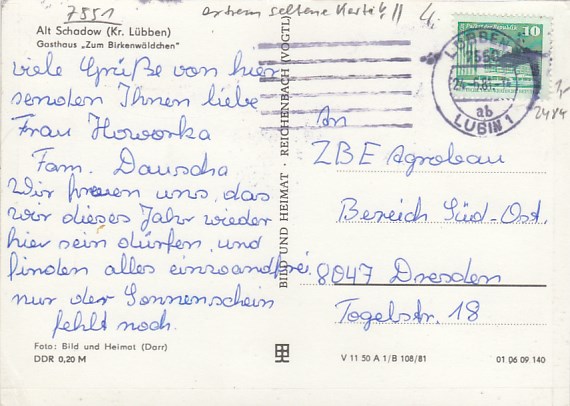 7551
extrem seltene Karte!!
Alt Schadow (Kr. Lübben)
Gasthaus „Zum Birkenwäldchen"
viele Grüße von hier
senden Ihnen liebe
Frau Howorka
Fam. Dauscha
Wir freuen uns, das
wir dieses Jahr wieder
hier sein dürfen, und
finden alles einwandfrei.
nur der Sonnenschein
fehlt noch.
Foto: Bild und Heimat (Darr)
DDR 0,20 M
BILD UND HEIMAT · REICHENBACH (VOGTL)
10
LÜBBEN
7550
ab
LUBIN 1
An
ZBE Agrobau
Bereich Süd-Ost.
8047 Dresden
Togelstr. 18
V 11 50 A 1/B 108/81
01 06 09 140